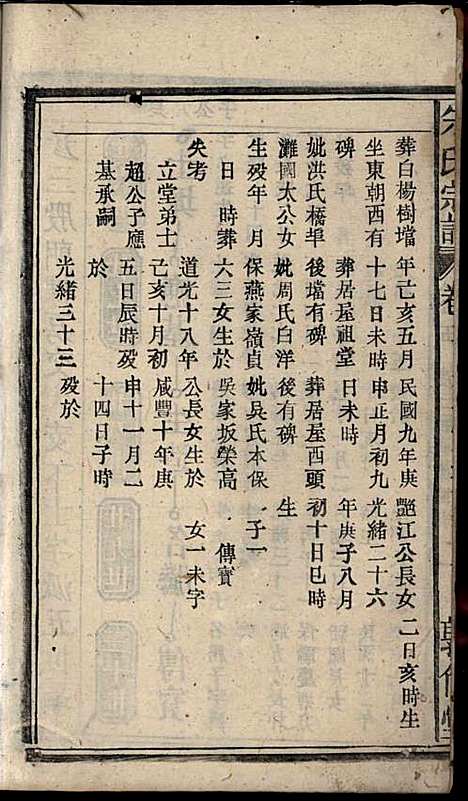 葬白楊樹壋 年己亥五月 民國九年庚 艷江公長女 二日亥時生
坐東朝西有 十七日未時 申正月初九 光緒二十六
碑 葬居屋祖堂 日未時 年庚子八月
妣洪氏橋埠 後壋有碑 葬居屋西頭 初十日巳時
灘國太公女 妣周氏白洋 後有碑 生
生歿年 月 保燕家嶺貞 妣吳氏本保 子一
日 時葬 六三女生於 吳家坂榮高 傳寶
失考 道光十八年 公長女生於 女一未字
立堂弟士 己亥十月初 咸豐十年庚
超公子應 五日辰時歿 申十一月二
基承嗣 於 十四日子時
光緒三十三 歿於
氏宗譜 卷